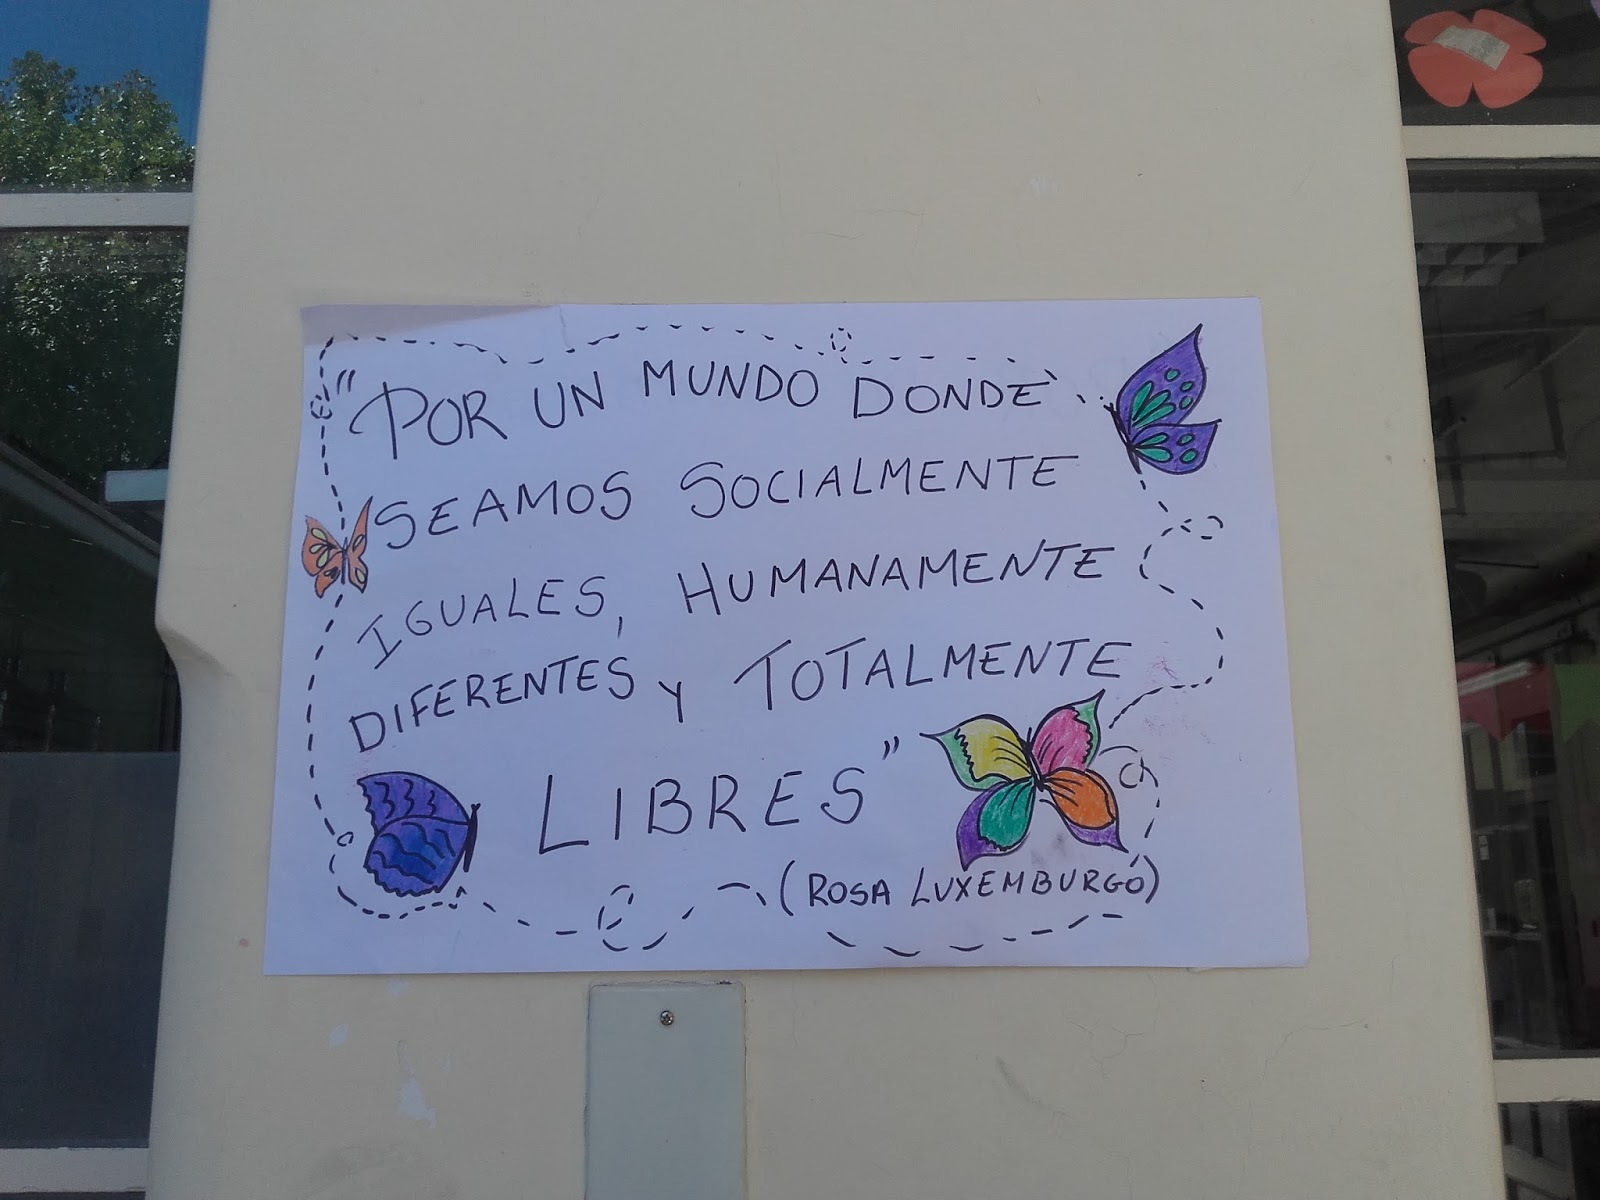 "POR UN MUNDO DONDE
SEAMOS SOCIALMENTE
IGUALES, HUMANAMENTE
DIFERENTES Y TOTALMENTE
LIBRES"
(ROSA LUXEMBURGO)